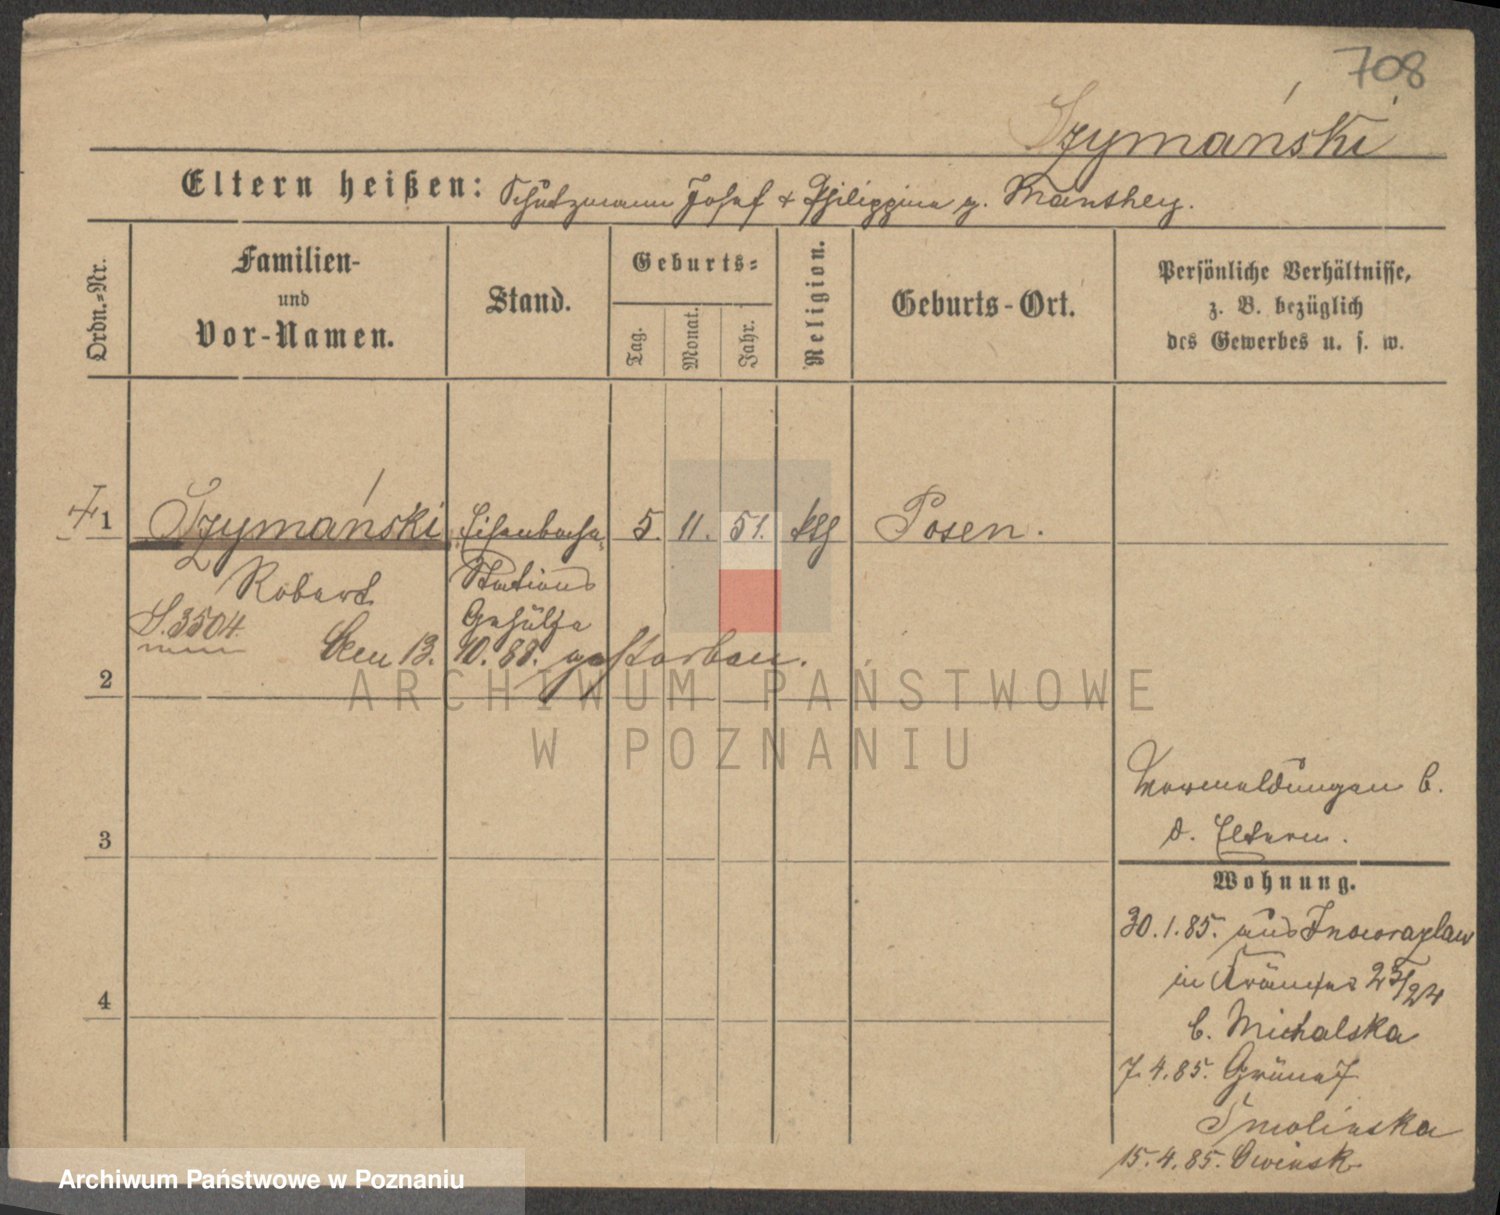 708
Szymański
Eltern heißen: Schutzmann Josef + Philippine g. Manthey.
Ordn.-Nr.
Familien-
und
Vor-Namen.
Stand.
Geburts-
Tag.
Monat.
Jahr.
Religion.
Geburts-Ort.
Persönliche Verhältnisse,
z. B. bezüglich
des Gewerbes u. s. w.
1 Szymański Eisenbahn 5. 11. 51. kth Posen.
Robert Stations
S. 3504. Gehülfe
Den 13. 10. 88. gestorben.
2
3
4
Vormeldungen b.
d. Eltern.
Wohnung.
30. 1. 85. aus Inowrazlaw
in Krämer 23/24
b. Michalska
7. 4. 85. Grüne 7
Smolinska
15. 4. 85. Owinsk
ARCHIWUM PAŃSTWOWE
W POZNANIU
Archiwum Państwowe w Poznaniu